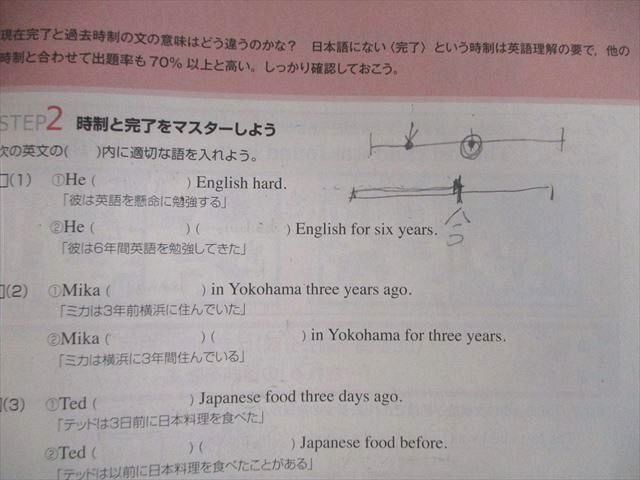 現在完了と過去時制の文の意味はどう違うのかな? 日本語にない〈完了〉という時制は英語理解の要で，他の
時制と合わせて出題率も70%以上と高い。しっかり確認しておこう。
STEP2 時制と完了をマスターしよう
次の英文の( )内に適切な語を入れよう。
□(1) ①He ( ) English hard.
「彼は英語を懸命に勉強する」
②He ( ) ( ) English for six years.
「彼は6年間英語を勉強してきた」
今
□(2) ①Mika ( ) in Yokohama three years ago.
「ミカは3年前横浜に住んでいた」
②Mika ( ) ( ) in Yokohama for three years.
「ミカは横浜に3年間住んでいる」
□(3) ①Ted ( ) Japanese food three days ago.
「テッドは3日前に日本料理を食べた」
②Ted ( ) ( ) Japanese food before.
「テッドは以前に日本料理を食べたことがある」